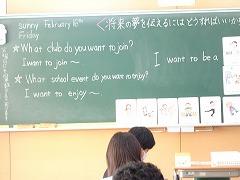 sunny February 16th
Friday
<将来の夢を伝えるにはどうすればいいか
☆What club do you want to join?
I want to join 〜
I want to be a
☆What school event do you want to enjoy?
I want to enjoy 〜.